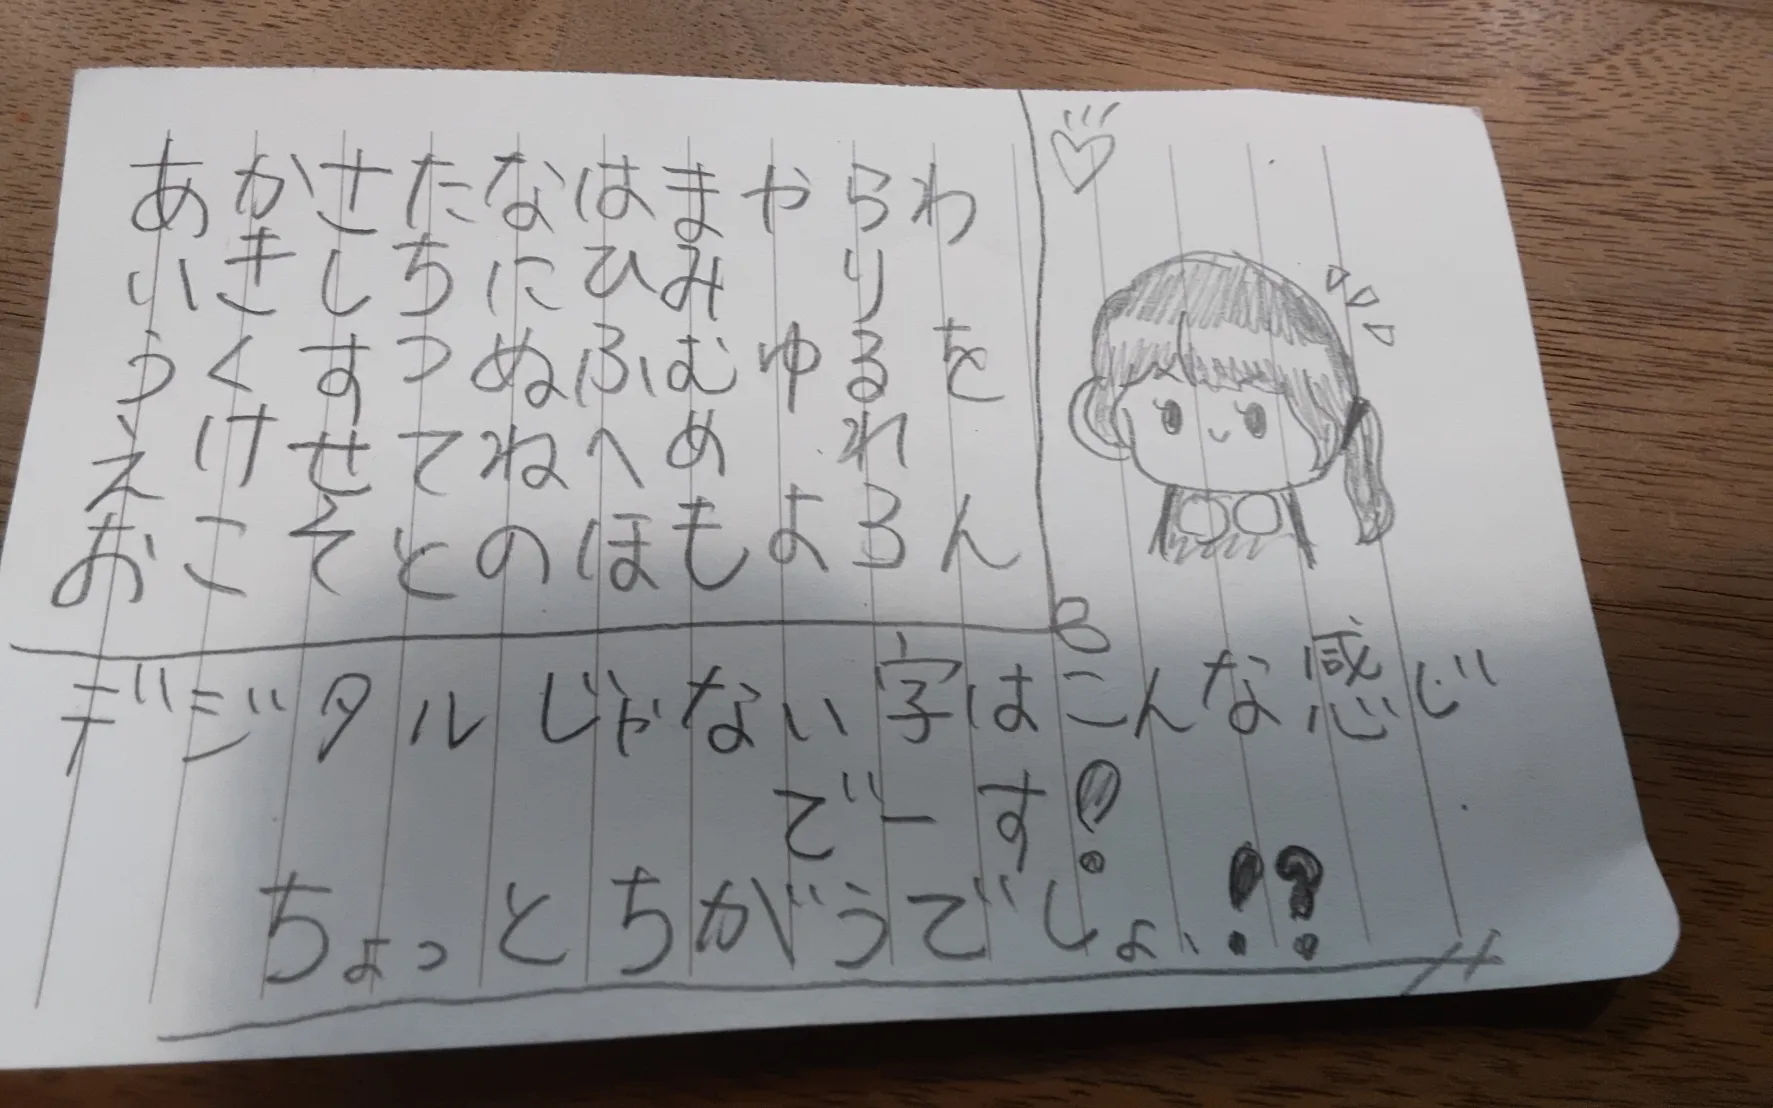 あかさたなはまやらわ
いきしちにひみ り
うくすつぬふむゆるを
えけせてねへめ れ
おこそとのほもよろん
デジタルじゃない字はこんな感じ
でーす!
ちょっとちがうでしょ、!?